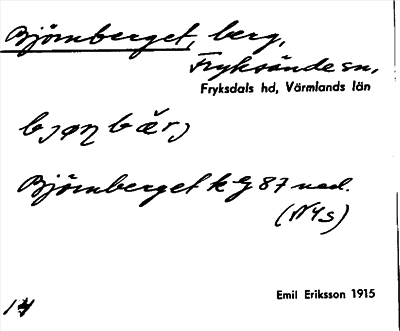 Björnberget, berg,
Fryksände sn,
Fryksdals hd, Värmlands län
Björnberget k G 87 ned.
(NYs)
Emil Eriksson 1915
14